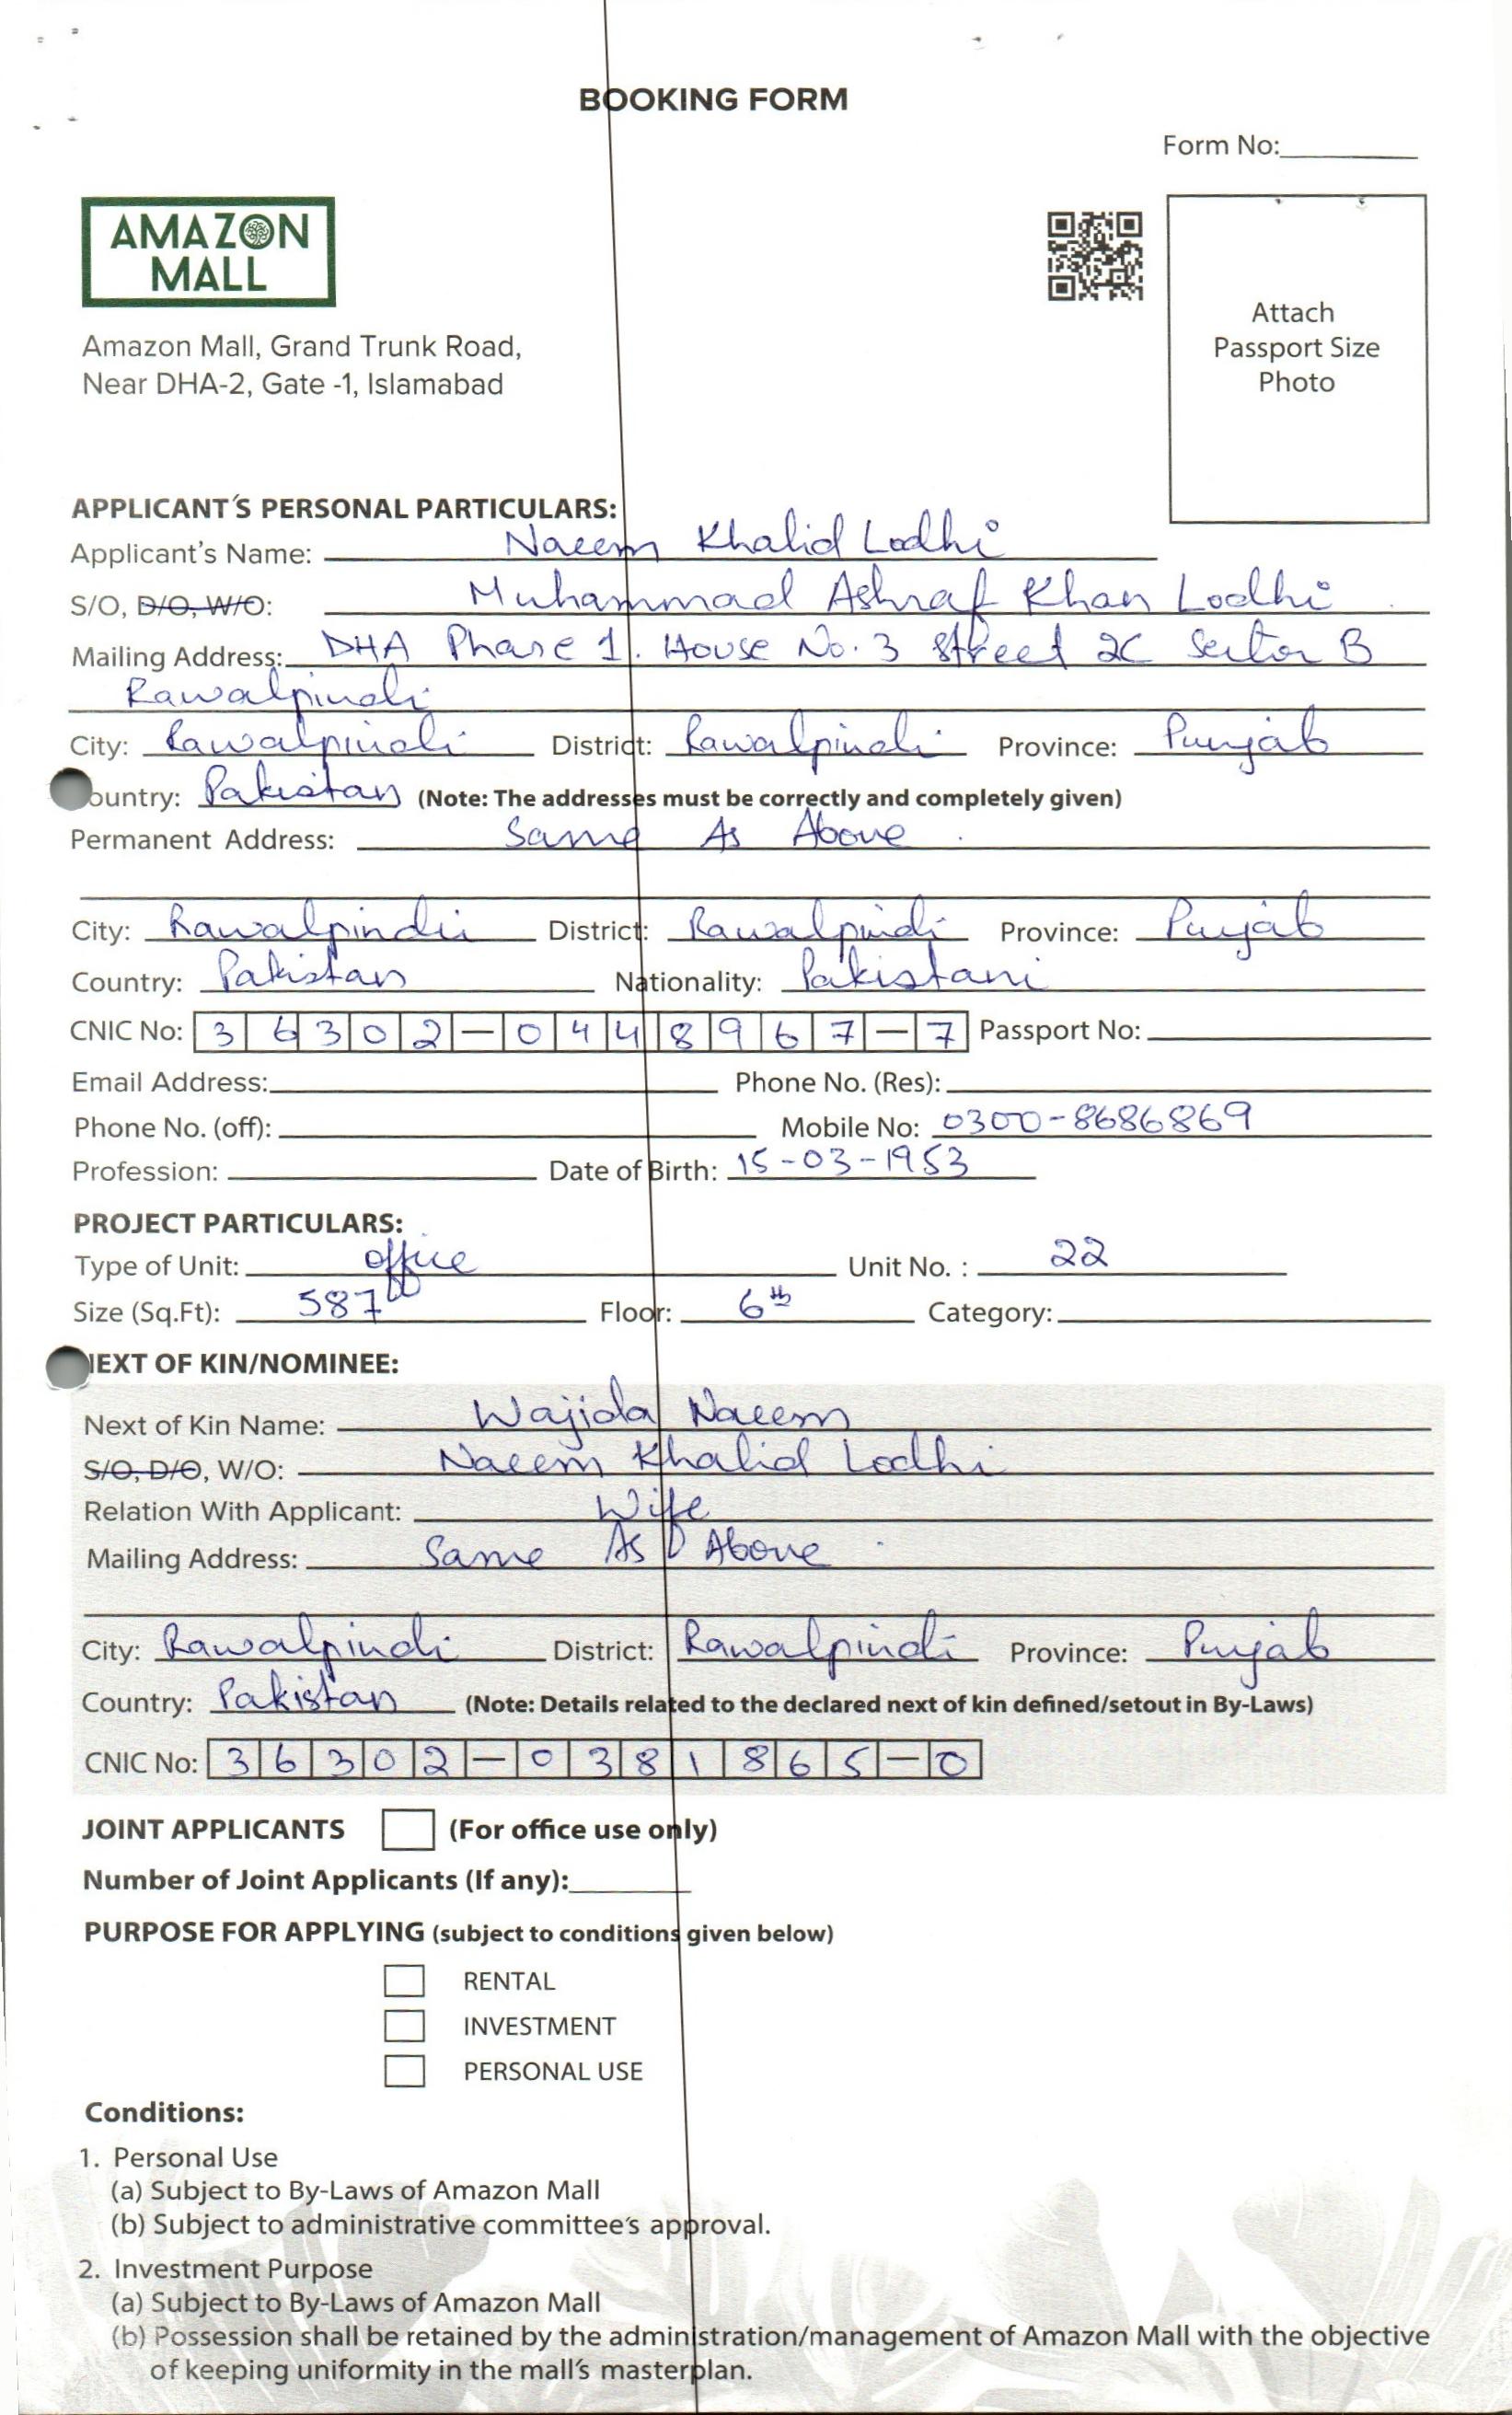 BOOKING FORM
Form No:
AMAZON
MALL
Attach
Passport Size
Photo
Amazon Mall, Grand Trunk Road,
Near DHA-2, Gate -1, Islamabad
APPLICANT'S PERSONAL PARTICULARS:
Applicant's Name: Naeem Khalid Lodhi
S/O, D/O, W/O: Muhammad Ashraf Khan Lodhi
Mailing Address: DHA Phase 1. House No. 3 Street 2C Sector B
Rawalpindi
City: Rawalpindi District: Rawalpindi Province: Punjab
ountry: Pakistan (Note: The addresses must be correctly and completely given)
Permanent Address: Same As Above
City: Rawalpindi District: Rawalpindi Province: Punjab
Country: Pakistan Nationality: Pakistani
CNIC No: 36302-0448967-7 Passport No:
Email Address: Phone No. (Res):
Phone No. (off): Mobile No: 0300-8686869
Profession: Date of Birth: 15-03-1953
PROJECT PARTICULARS:
Type of Unit: office Unit No. : 22
Size (Sq.Ft): 587 Floor: 6th Category:
NEXT OF KIN/NOMINEE:
Next of Kin Name: Wajida Naeem
S/O, D/O, W/O: Naeem Khalid Lodhi
Relation With Applicant: Wife
Mailing Address: Same As Above
City: Rawalpindi District: Rawalpindi Province: Punjab
Country: Pakistan (Note: Details related to the declared next of kin defined/setout in By-Laws)
CNIC No: 36302-0381865-0
JOINT APPLICANTS (For office use only)
Number of Joint Applicants (If any):
PURPOSE FOR APPLYING (subject to conditions given below)
RENTAL
INVESTMENT
PERSONAL USE
Conditions:
1. Personal Use
(a) Subject to By-Laws of Amazon Mall
(b) Subject to administrative committee's approval.
2. Investment Purpose
(a) Subject to By-Laws of Amazon Mall
(b) Possession shall be retained by the administration/management of Amazon Mall with the objective
of keeping uniformity in the mall's masterplan.